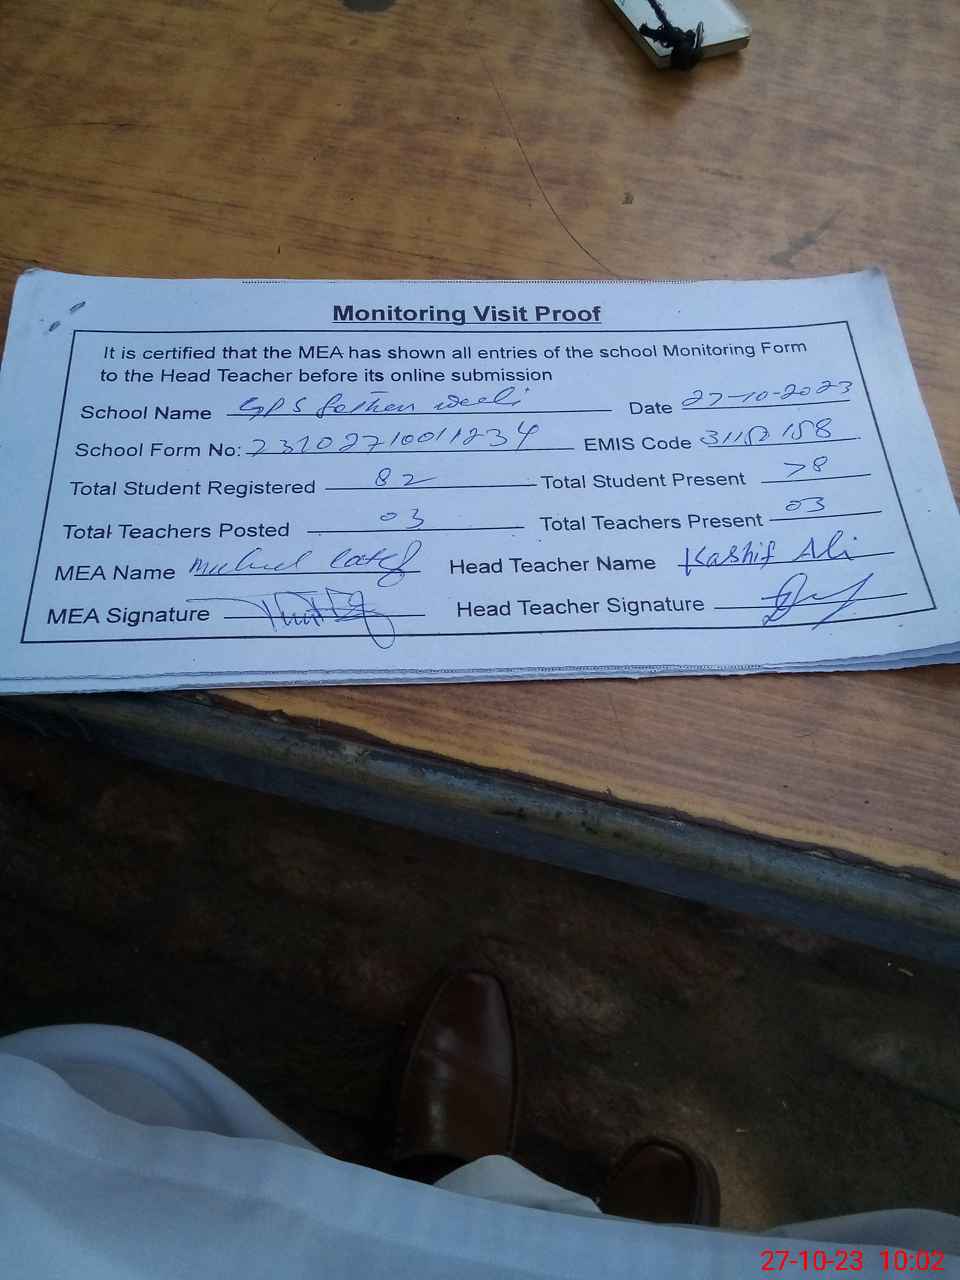 Monitoring Visit Proof
It is certified that the MEA has shown all entries of the school Monitoring Form
to the Head Teacher before its online submission
School Name GPS Date 27-10-2023
School Form No: EMIS Code
Total Student Registered 82 Total Student Present 78
Total Teachers Posted 03 Total Teachers Present 03
MEA Name Head Teacher Name Kashif Ali
MEA Signature Head Teacher Signature
27-10-23 10:02